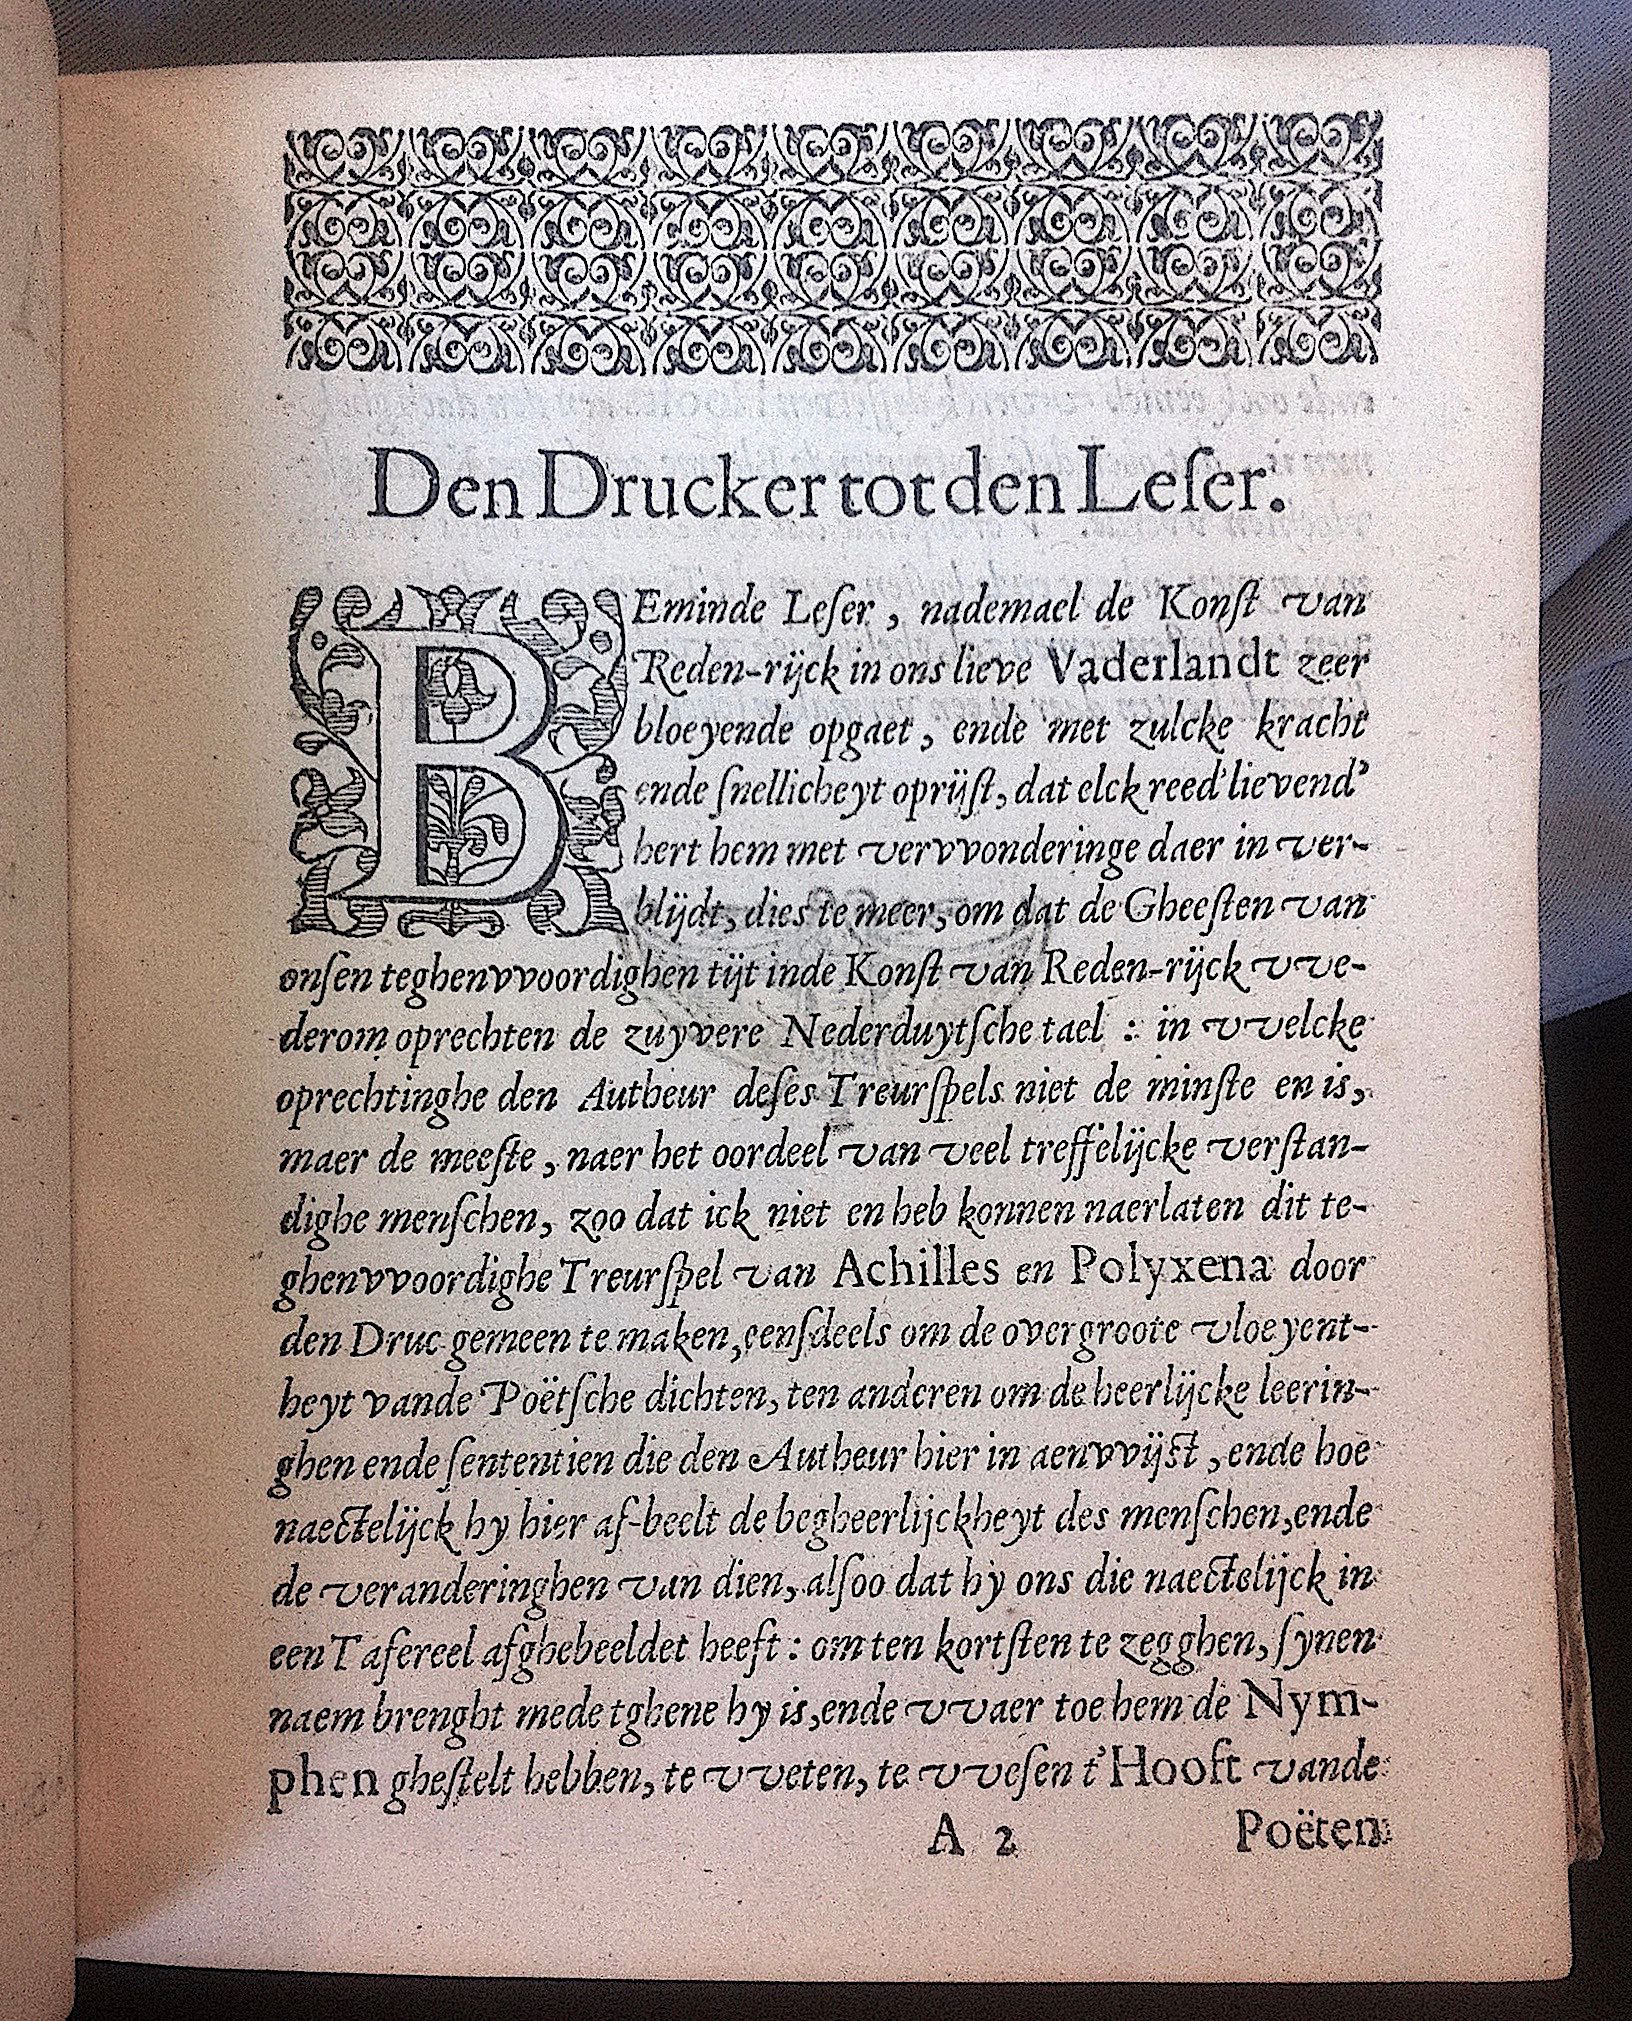 Den Drucker tot den Leſer.
BEminde Leſer, nademael de Konſt van
Reden-rijck in ons lieve Vaderlandt zeer
bloeyende opgaet, ende met zulcke kracht
ende ſnellicheyt oprijſt, dat elck reed'lievend'
hert hem met vervvonderinge daer in ver-
blijdt, dies te meer, om dat de Gheeſten van
onſen teghenvvoordighen tijt inde Konſt van Reden-rijck vve-
derom oprechten de zuyvere Nederduytſche tael : in vvelcke
oprechtinghe den Autheur deſes Treurſpels niet de minſte en is,
maer de meeſte, naer het oordeel van veel treffelijcke verſtan-
dighe menſchen, zoo dat ick niet en heb konnen naerlaten dit te-
ghenvvoordighe Treurſpel van Achilles en Polyxena door
den Druc gemeen te maken, eenſdeels om de overgroote vloeyent-
heyt vande Poëtſche dichten, ten anderen om de heerlijcke leerin-
ghen ende ſententien die den Autheur hier in aenvvijst, ende hoe
naectelijck hy hier af-beelt de begheerlijckheyt des menſchen, ende
de veranderinghen van dien, alſoo dat hy ons die naectelijck in
een Tafereel afghebeeldet heeft : om ten kortſten te zegghen, ſynen
naem brenght mede tghene hy is, ende vvaer toe hem de Nym-
phen gheſtelt hebben, te vveten, te vveſen t'Hooft vande
A 2 Poëten